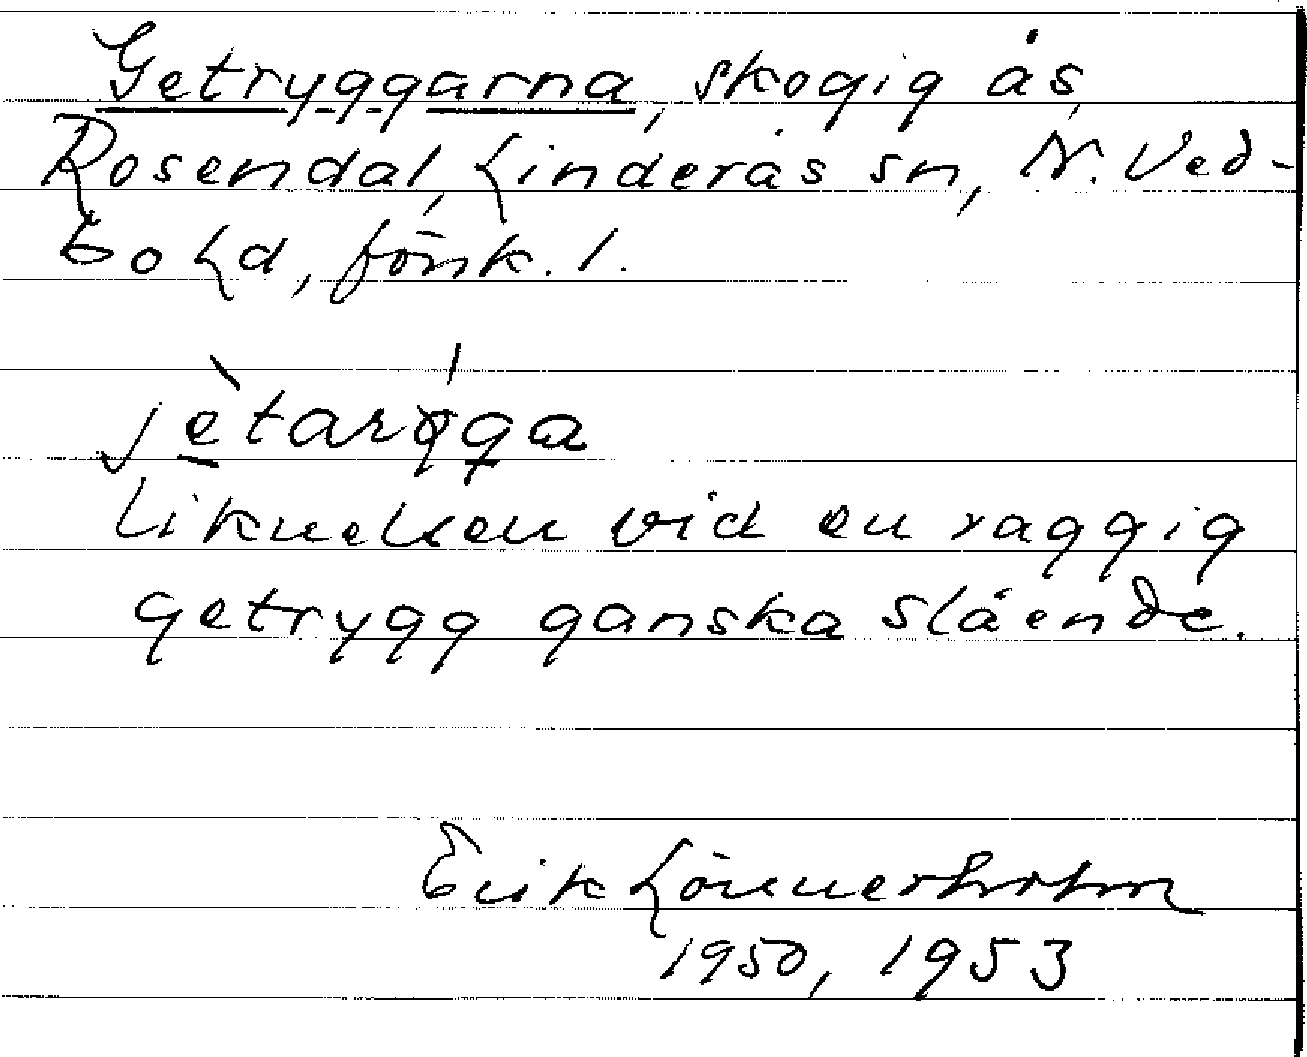 Getryggarna, skogig ås,
Rosendal, Linderås sn, N. Ved-
bo hd, Jönk. l.
jètarýga
Liknelsen vid en raggig
getrygg ganska slående.
Erik Lönnerholm
1950, 1953